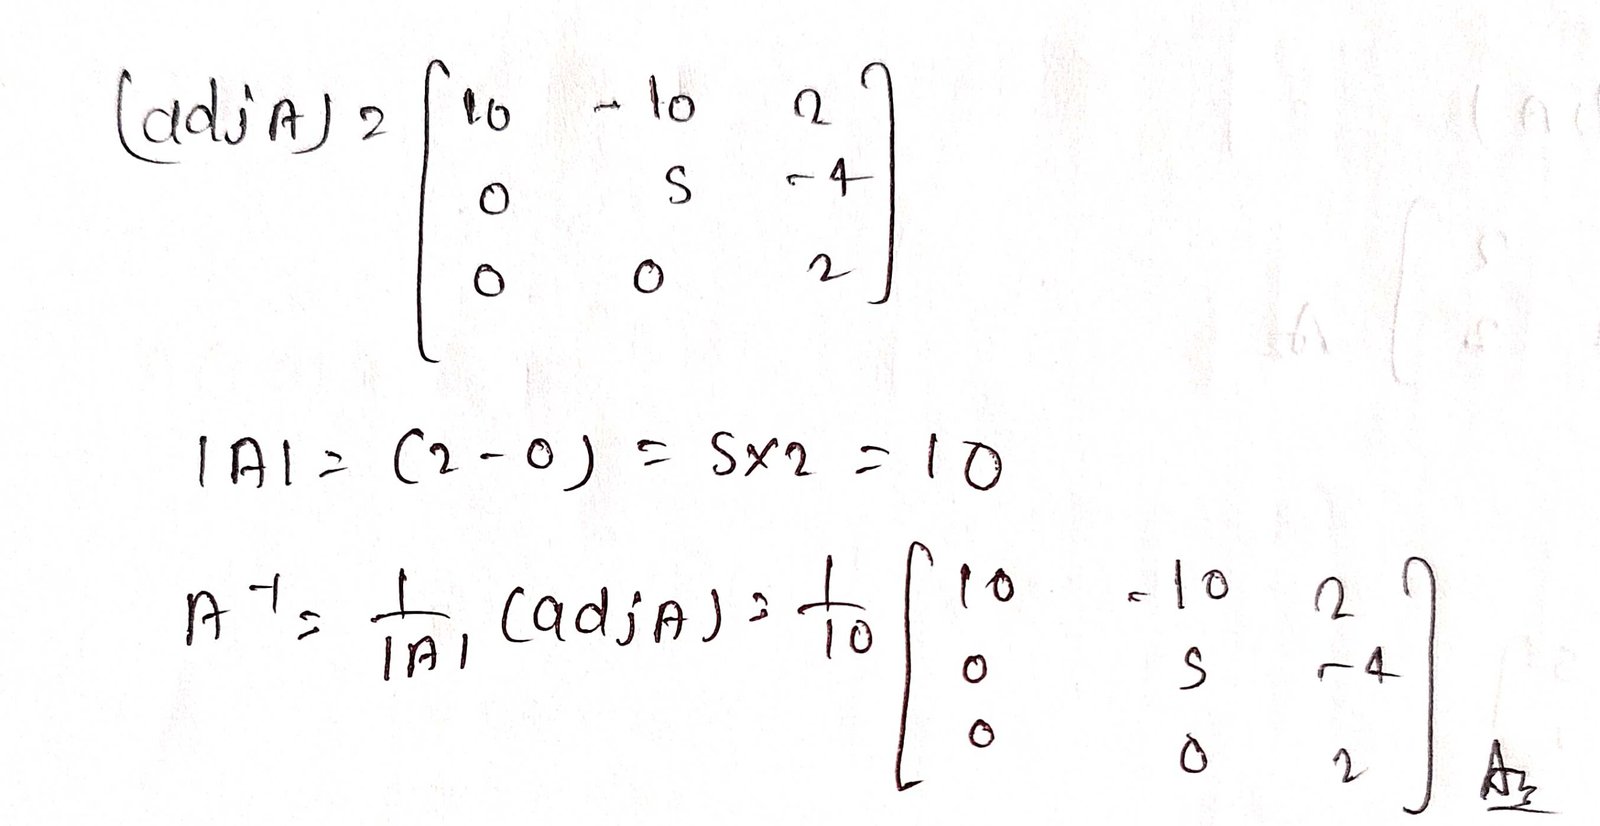 (adj A) = [10 -10 2
0 5 -4
0 0 2]
|A| = (2-0) = 5×2 = 10
A⁻¹ = 1/|A| (adj A) = 1/10 [10 -10 2
0 5 -4
0 0 2] Ans